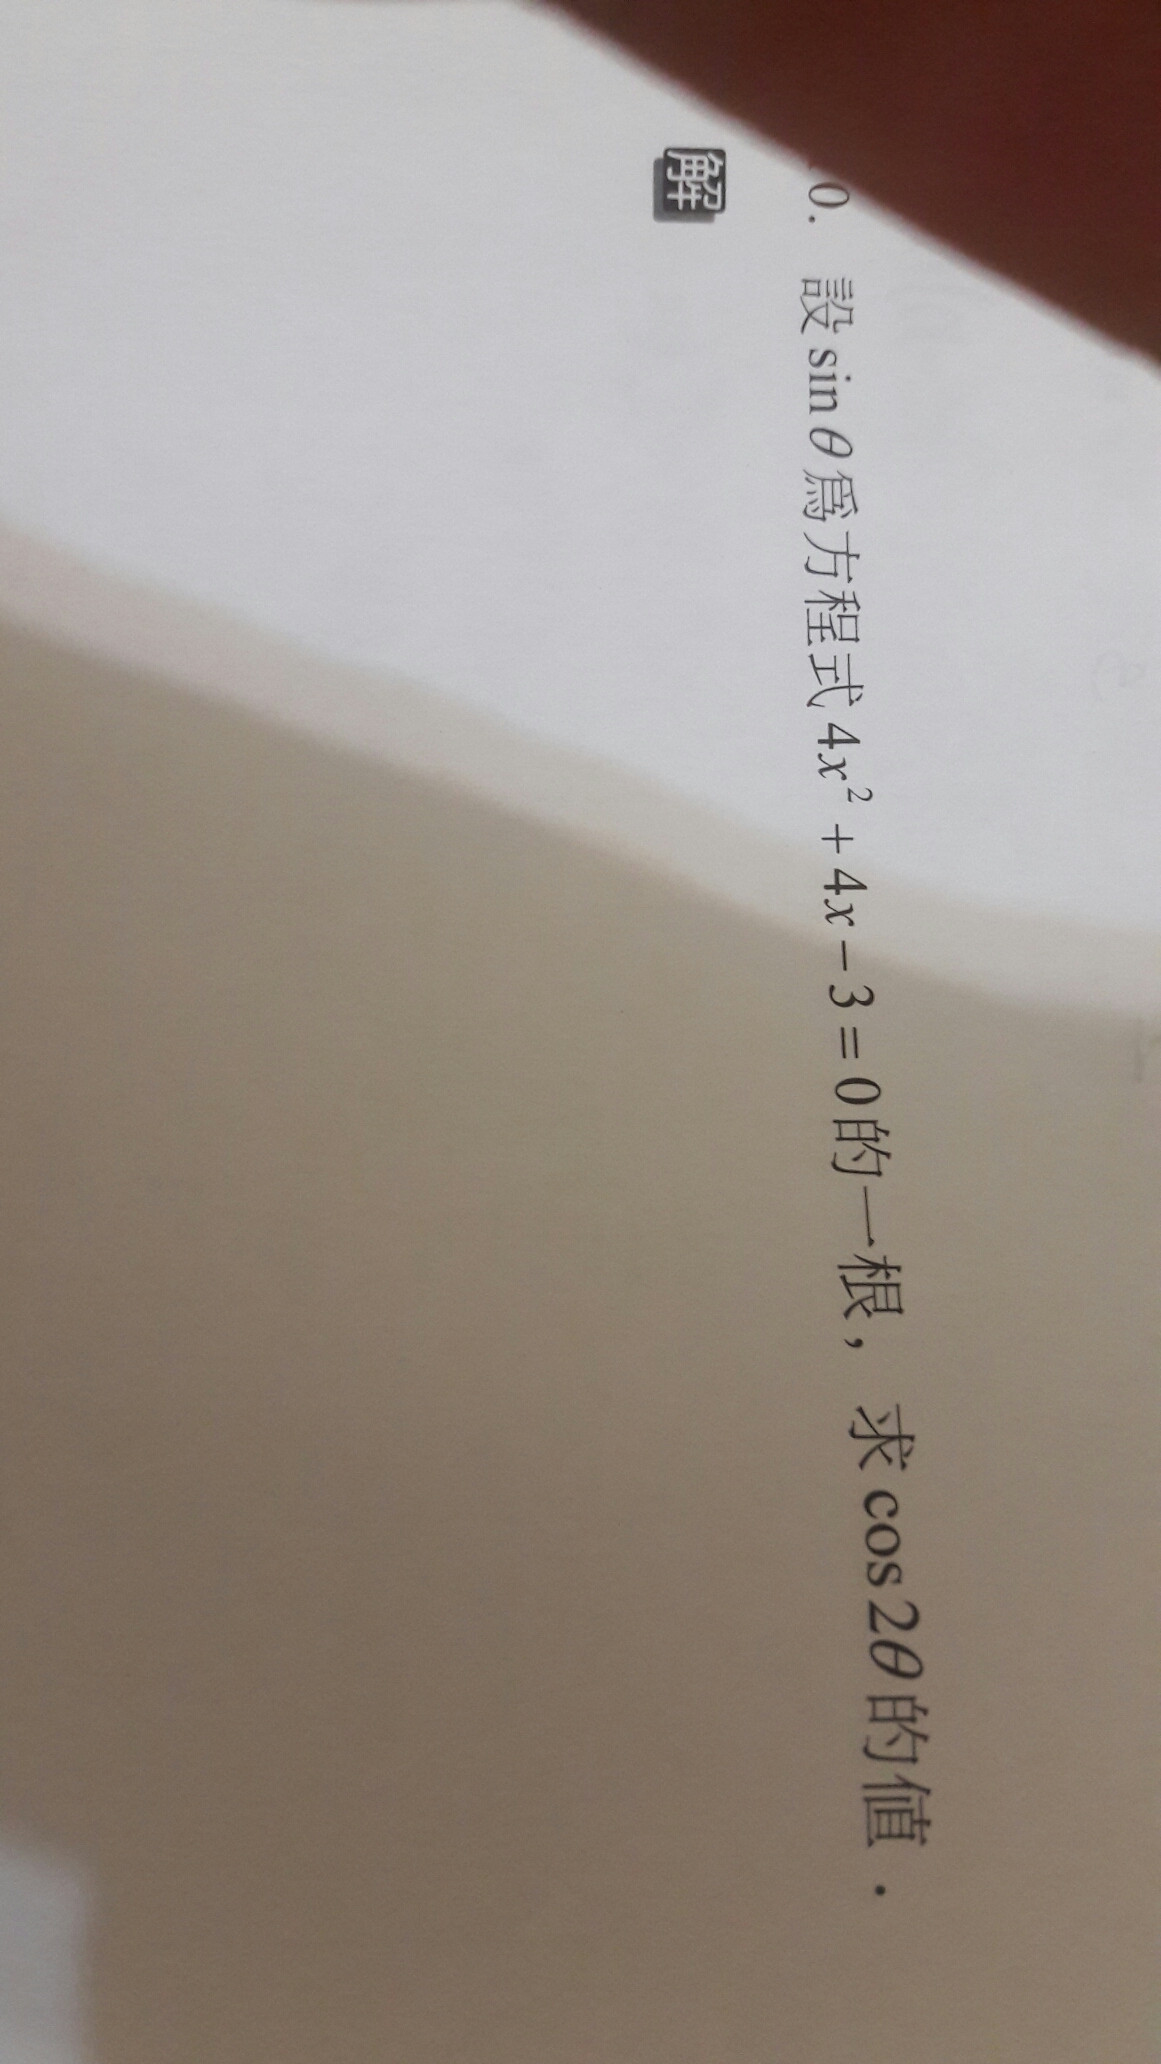 0. 設 sin θ 為方程式 4x² + 4x − 3 = 0 的一根，求 cos 2θ 的值．
解